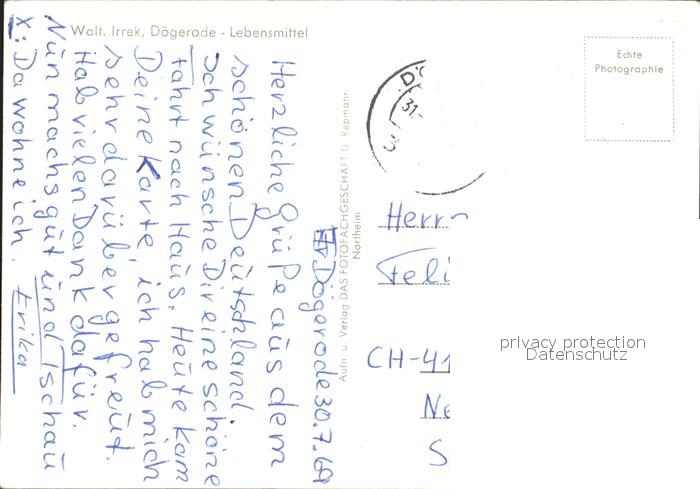 Walt. Irrek, Dögerode - Lebensmittel
Dögerode 30.7.69
Herzliche Grüße aus dem
schönen Deutschland.
Ich wünsche Dir eine schöne
fahrt nach Haus. Heute kam
Deine Karte, ich hab mich
sehr darüber gefreut.
Hab vielen Dank dafür.
Nun machs gut und Tschau
Erika
X: Da wohne ich.
Aufn. u. Verlag DAS FOTOFACHGESCHÄFT D. Repmann
Northeim
31.
Echte
Photographie
Herrn
Feli
CH-41
Ne
S
privacy protection
Datenschutz